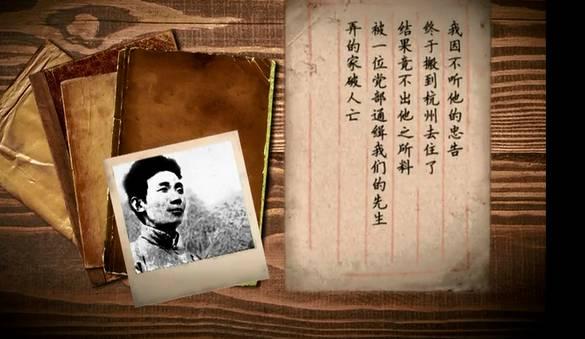 我因不听他的忠告
终于搬到杭州去住了
结果竟不出他之所料
被一位党部通缉我们的先生
弄的家破人亡